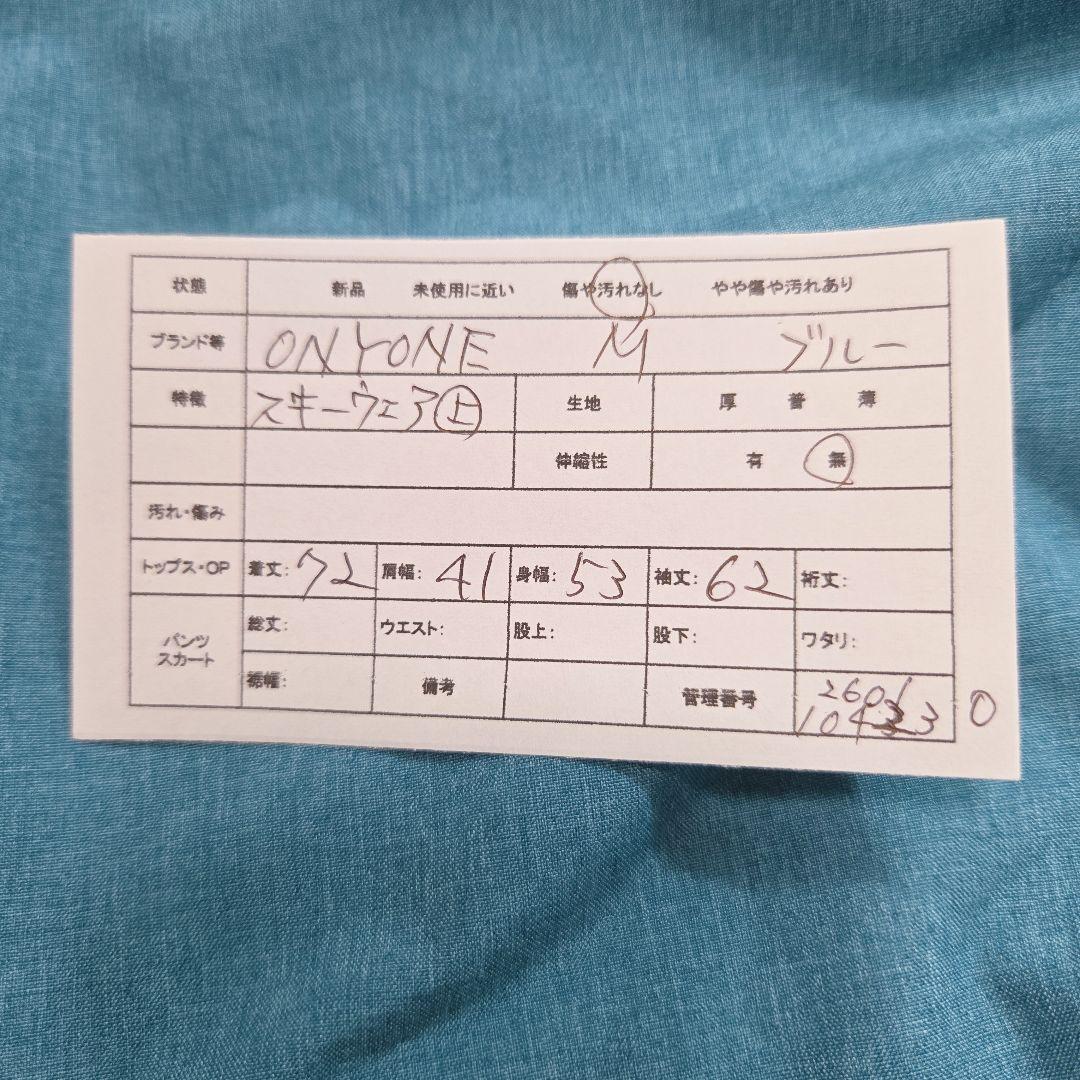 状態 新品 未使用に近い 傷や汚れなし やや傷や汚れあり
ブランド等 ONYONE M ブルー
特徴 スキーウェア上 生地 厚 普 薄
伸縮性 有 無
汚れ・傷み
トップス・OP 着丈: 72 肩幅: 41 身幅: 53 袖丈: 62 裄丈:
パンツ スカート 総丈: ウエスト: 股上: 股下: ワタリ:
裾幅: 備考 管理番号 2601
0